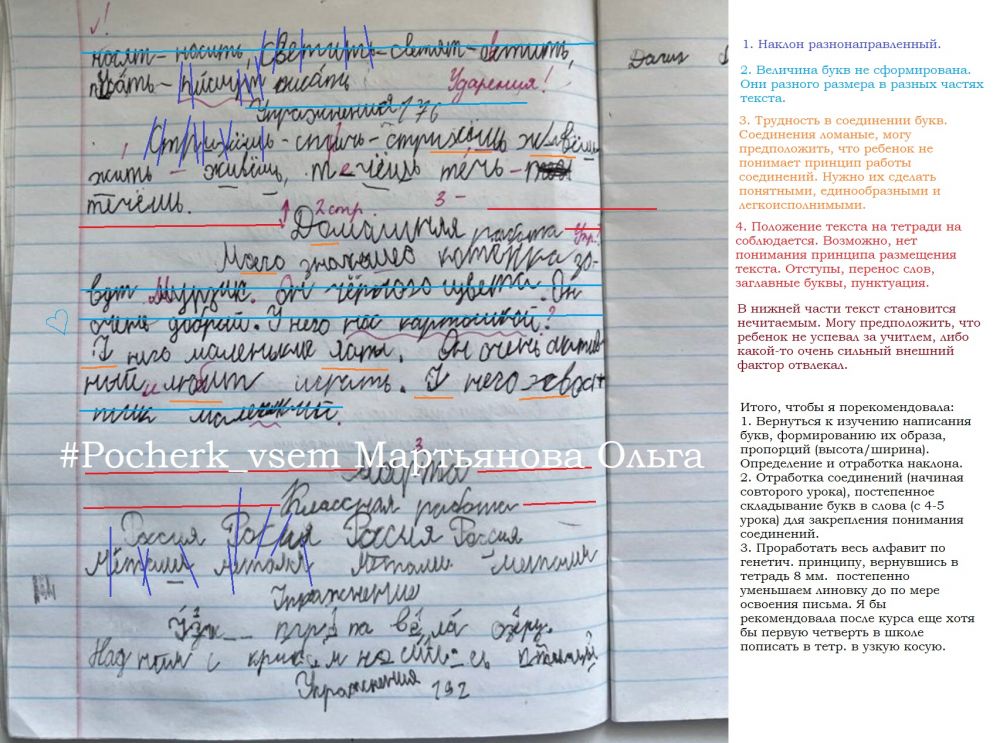 носят - носить, светит - светят - светить,
писать - пишут писать
Ударения!
Упражнения 176
Стрижёшь - стричь - стрижёшь живёшь
жить - живёшь, течёшь течь -
течёшь.
2 стр. 3 -
Домашняя работа Упр!
Моего котёнка зо-
вут Мурзик. Он чёрного цвета. Он
очень добрый. У него нос картошкой?
У него маленькие лапы. Он очень актив
ный и любит играть. У него хвост
тик маленький.
#Pocherk_vsem Мартьянова Ольга
3 марта
Классная работа
Россия Россия Россия Россия
Металл
Упражнение
озеру.
Над ним с криком
Упражнения 192
1. Наклон разнонаправленный.
2. Величина букв не сформирована.
Они разного размера в разных частях
текста.
3. Трудность в соединении букв.
Соединения ломаные, могу
предположить, что ребенок не
понимает принцип работы
соединений. Нужно их сделать
понятными, единообразными и
легкоисполнимыми.
4. Положение текста на тетради на
соблюдается. Возможно, нет
понимания принципа размещения
текста. Отступы, перенос слов,
заглавные буквы, пунктуация.
В нижней части текст становится
нечитаемым. Могу предположить, что
ребенок не успевал за учитлем, либо
какой-то очень сильный внешний
фактор отвлекал.
Итого, чтобы я порекомендовала:
1. Вернуться к изучению написания
букв, формированию их образа,
пропорций (высота/ширина).
Определение и отработка наклона.
2. Отработка соединений (начиная
совторого урока), постепенное
складывание букв в слова (с 4-5
урока) для закрепления понимания
соединений.
3. Проработать весь алфавит по
генетич. принципу, вернувшись в
тетрадь 8 мм. постепенно
уменьшаем линовку до по мере
освоения письма. Я бы
рекомендовала после курса еще хотя
бы первую четверть в школе
пописать в тетр. в узкую косую.